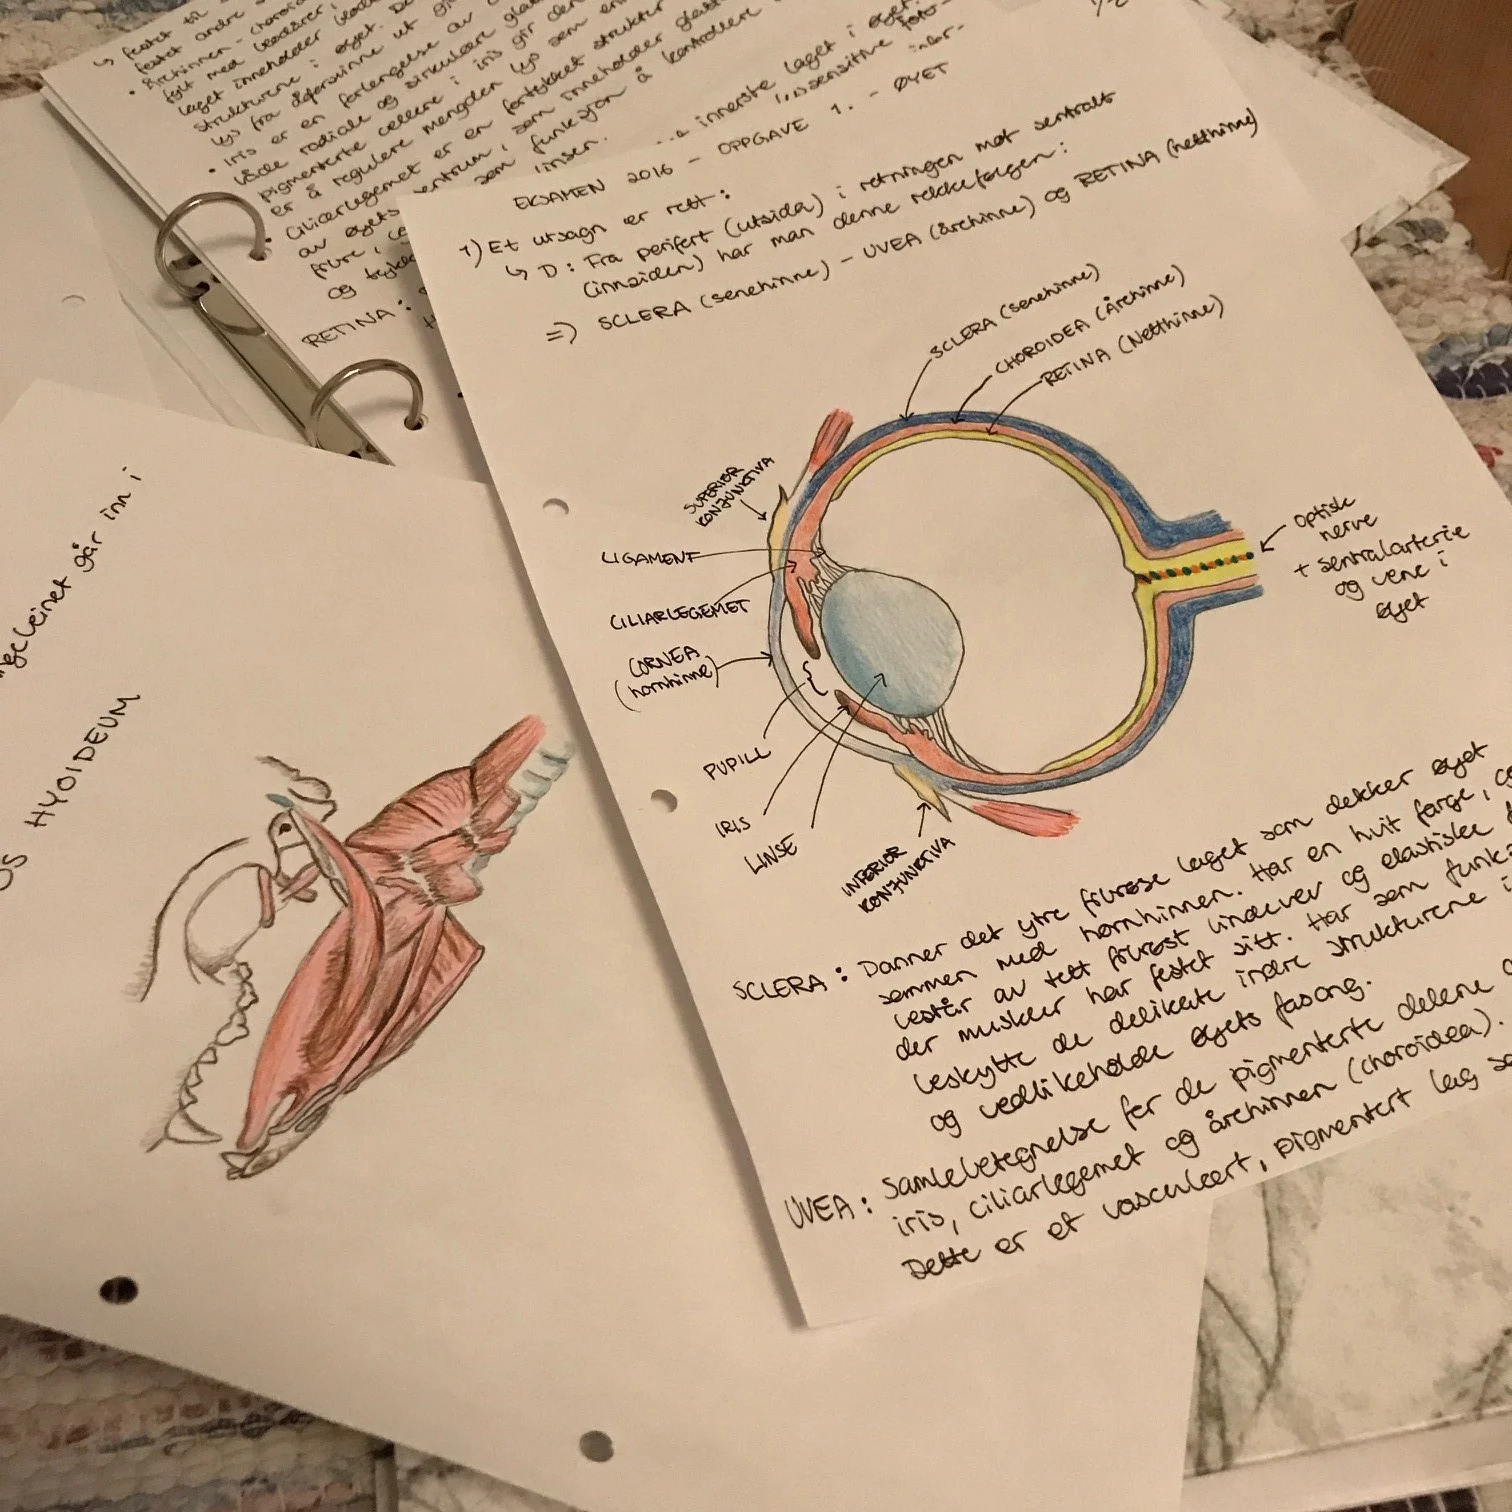 ↳ festet til
festet andre
• Årehinnen - choroidea
fylt med blodårer,
laget inneholder
strukturene i øyet. De
lys fra deforsvinne ut
• Iris er en forlengelse av
både radiale og sirkulære
pigmenterte cellene i iris gir den
er å regulere mengden lys som
• Ciliærlegemet er en fortykket struktur
av øyets sentrum, som inneholder
som funksjon å kontrollere
og linsen.
RETINA:
innerste laget i øyet.
EKSAMEN 2016 - OPPGAVE 1. - ØYET
1) Et utsagn er rett:
↳ D: Fra perifert (utsida) i retningen mot sentralt
(innsiden) har man denne rekkefølgen:
=> SCLERA (senehinne) - UVEA (årehinne) og RETINA (netthinne)
SCLERA (senehinne)
CHOROIDEA (Årehinne)
RETINA (Netthinne)
SUPERIOR
KONJUNKTIVA
LIGAMENT
CILIARLEGEMET
CORNEA
(hornhinne)
PUPILL
IRIS
LINSE
INFERIOR
KONJUNKTIVA
Optisk
nerve
+ sentralarterie
og vene i
øyet
SCLERA: Danner det ytre fibrøse laget som dekker øyet
sammen med hornhinnen. Har en hvit farge, og
består av tett fibrøst bindevev og elastiske
der muskler har festet sitt. Har som
beskytte de delikate indre strukturene i
og vedlikeholde øyets fasong.
UVEA: Samlebetegnelse for de pigmenterte delene
iris, ciliarlegemet og årehinnen (choroidea).
Dette er et vasculært, pigmentert lag
går inn i
OS HYOIDEUM